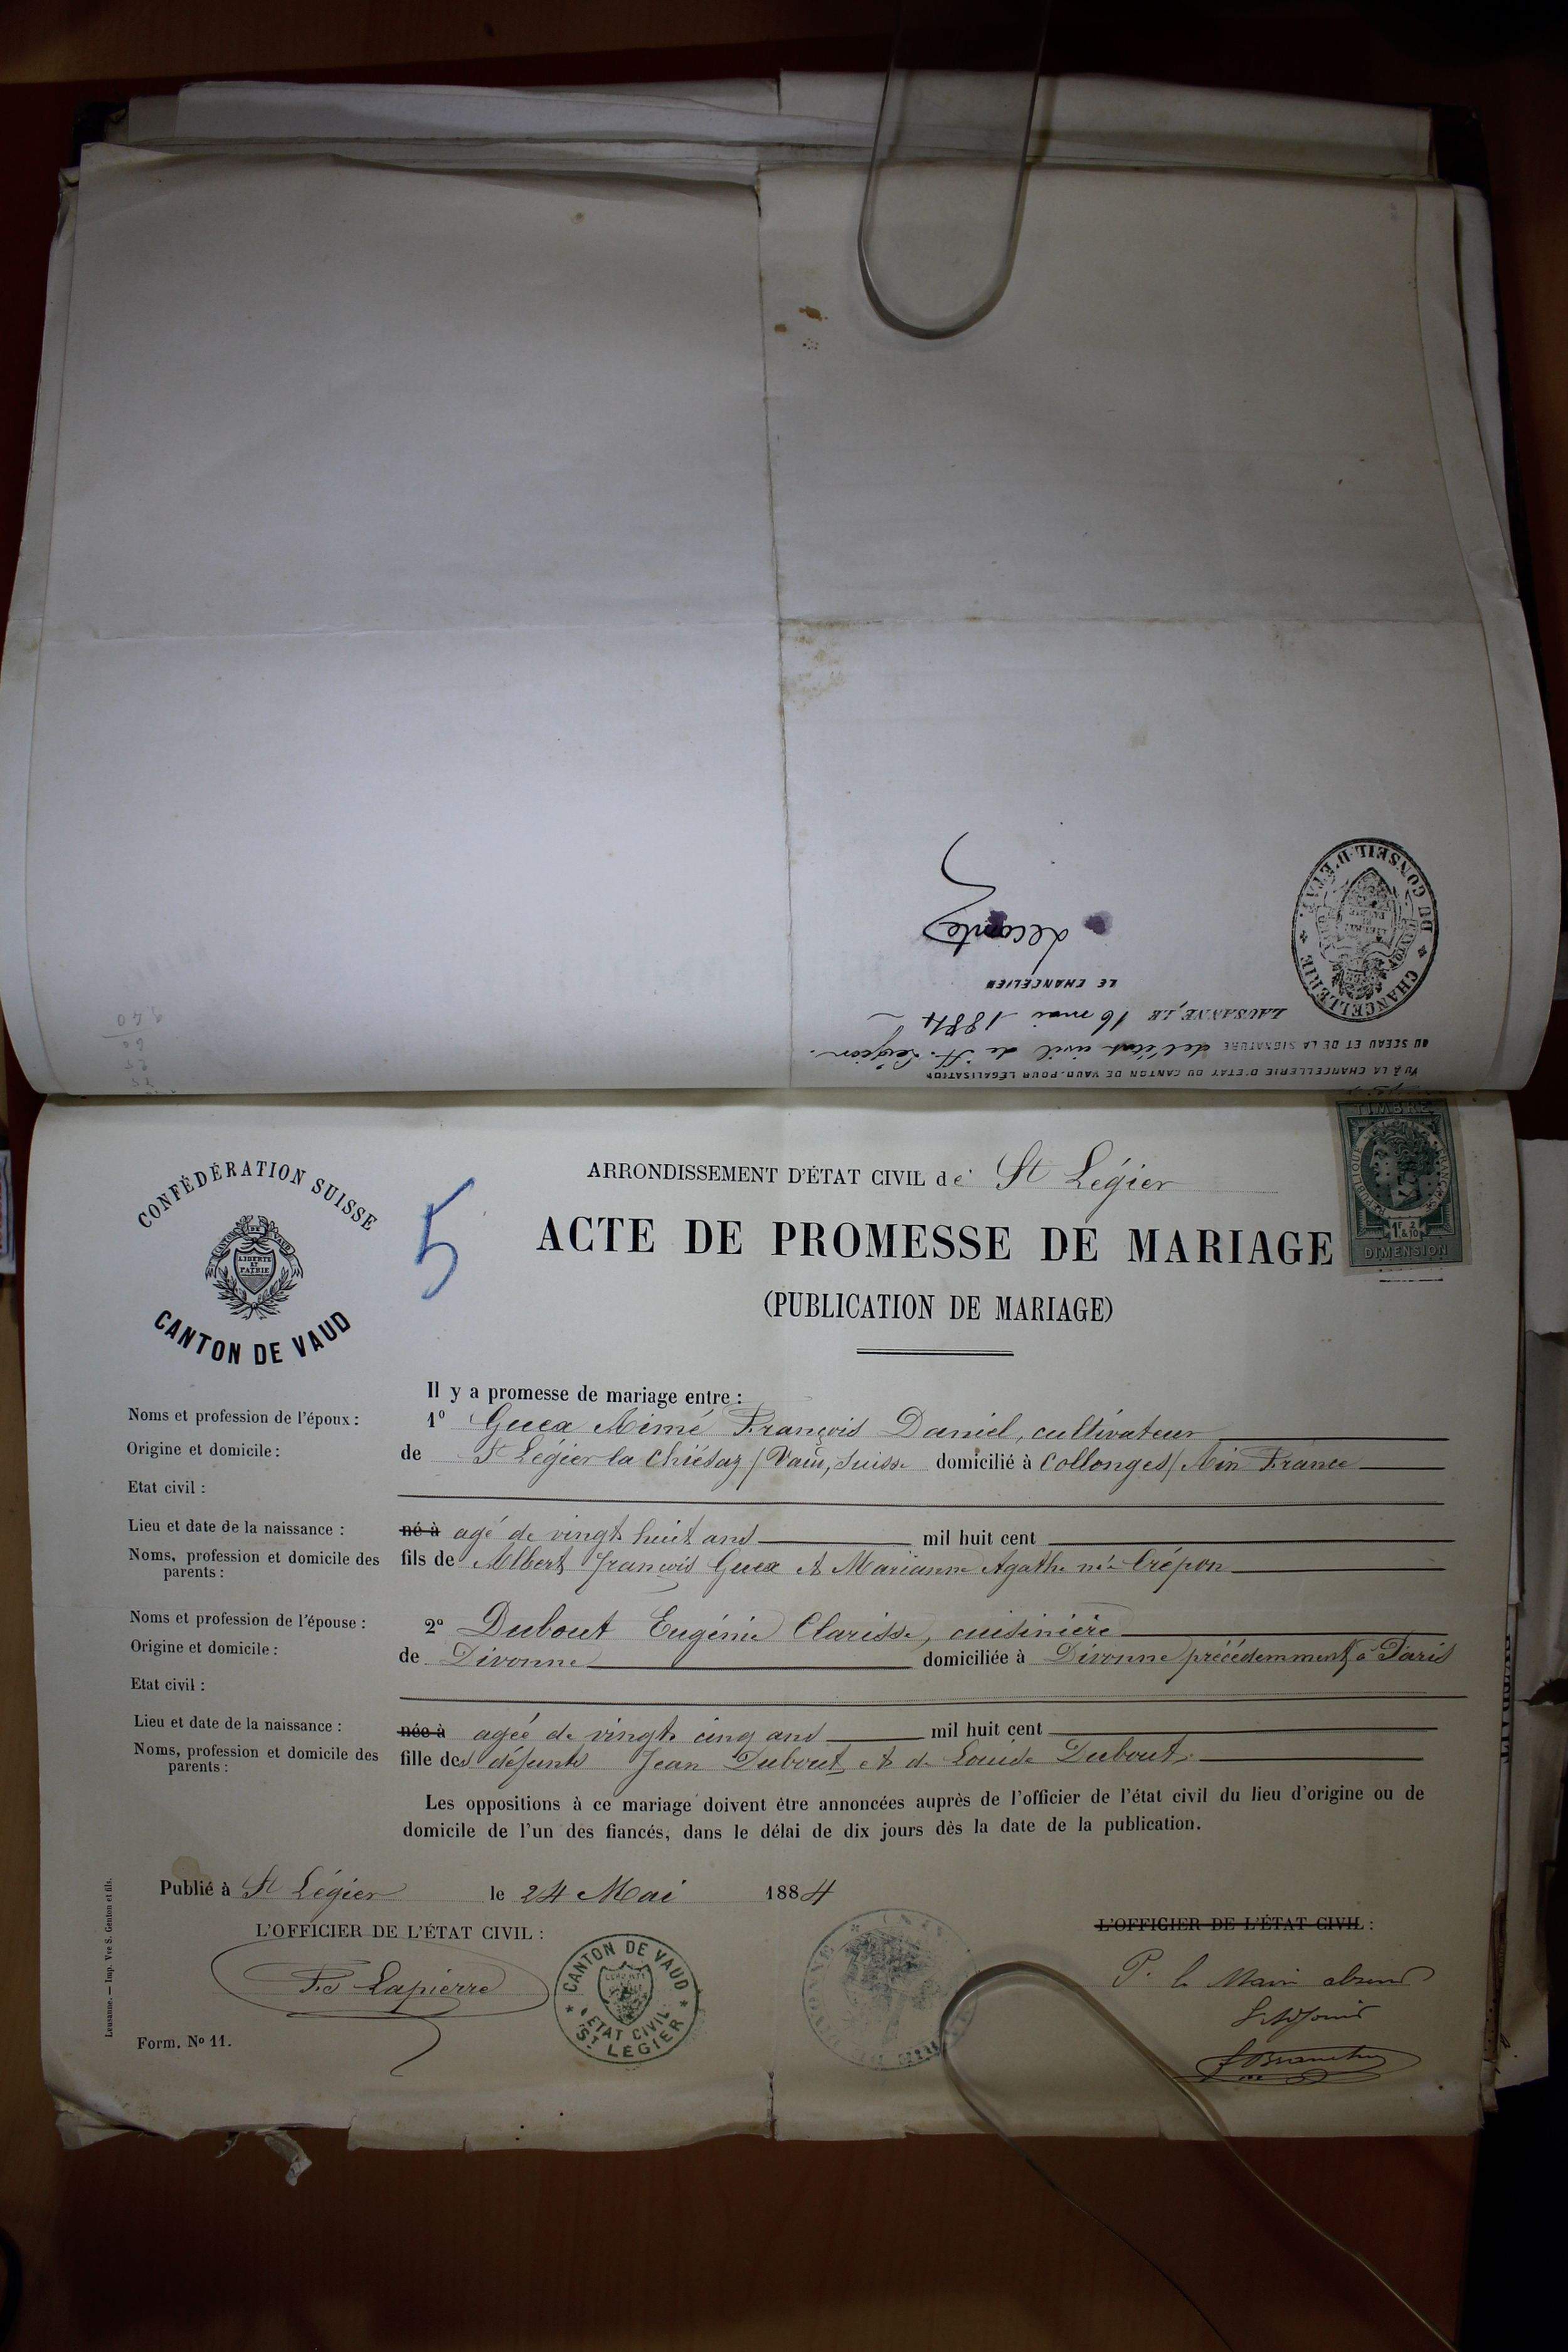 VU À LA CHANCELLERIE D'ETAT DU CANTON DE VAUD, POUR LÉGALISATION
DU SCEAU ET DE LA SIGNATURE de l'état civil de St. Légier.
LAUSANNE, LE 16 mai 1884
LE CHANCELIER
Lecomte
CHANCELLERIE DU CONSEIL D'ÉTAT
TIMBRE
RÉPUBLIQUE FRANÇAISE
DIMENSION
CONFÉDÉRATION SUISSE
LIBERTÉ ET PATRIE
CANTON DE VAUD
5
ARRONDISSEMENT D'ÉTAT CIVIL de St Légier
ACTE DE PROMESSE DE MARIAGE
(PUBLICATION DE MARIAGE)
Il y a promesse de mariage entre :
Noms et profession de l'époux : 1º Guex Aimé François Daniel, cultivateur
Origine et domicile : de St Légier la Chiésaz / Vaud, Suisse domicilié à Collonges / Ain France
Etat civil :
Lieu et date de la naissance : né à agé de vingt huit ans mil huit cent
Noms, profession et domicile des parents : fils de Albert François Guex et Marianne Agathe née Crépon
Noms et profession de l'épouse : 2º Dubout Eugénie Clarisse, cuisinière
Origine et domicile : de Divonne domiciliée à Divonne précédemment à Paris
Etat civil :
Lieu et date de la naissance : née à agée de vingt cinq ans mil huit cent
Noms, profession et domicile des parents : fille des défunts Jean Dubout et de Louise Dubout
Les oppositions à ce mariage doivent être annoncées auprès de l'officier de l'état civil du lieu d'origine ou de
domicile de l'un des fiancés, dans le délai de dix jours dès la date de la publication.
Publié à St Légier le 24 Mai 1884
L'OFFICIER DE L'ÉTAT CIVIL :
L'OFFICIER DE L'ÉTAT CIVIL :
Lapierre
CANTON DE VAUD
ETAT CIVIL
ST LEGIER
P. le Maire absent
L'adjoint
Form. Nº 11.
Lausanne. — Imp. Vve S. Genton et fils.